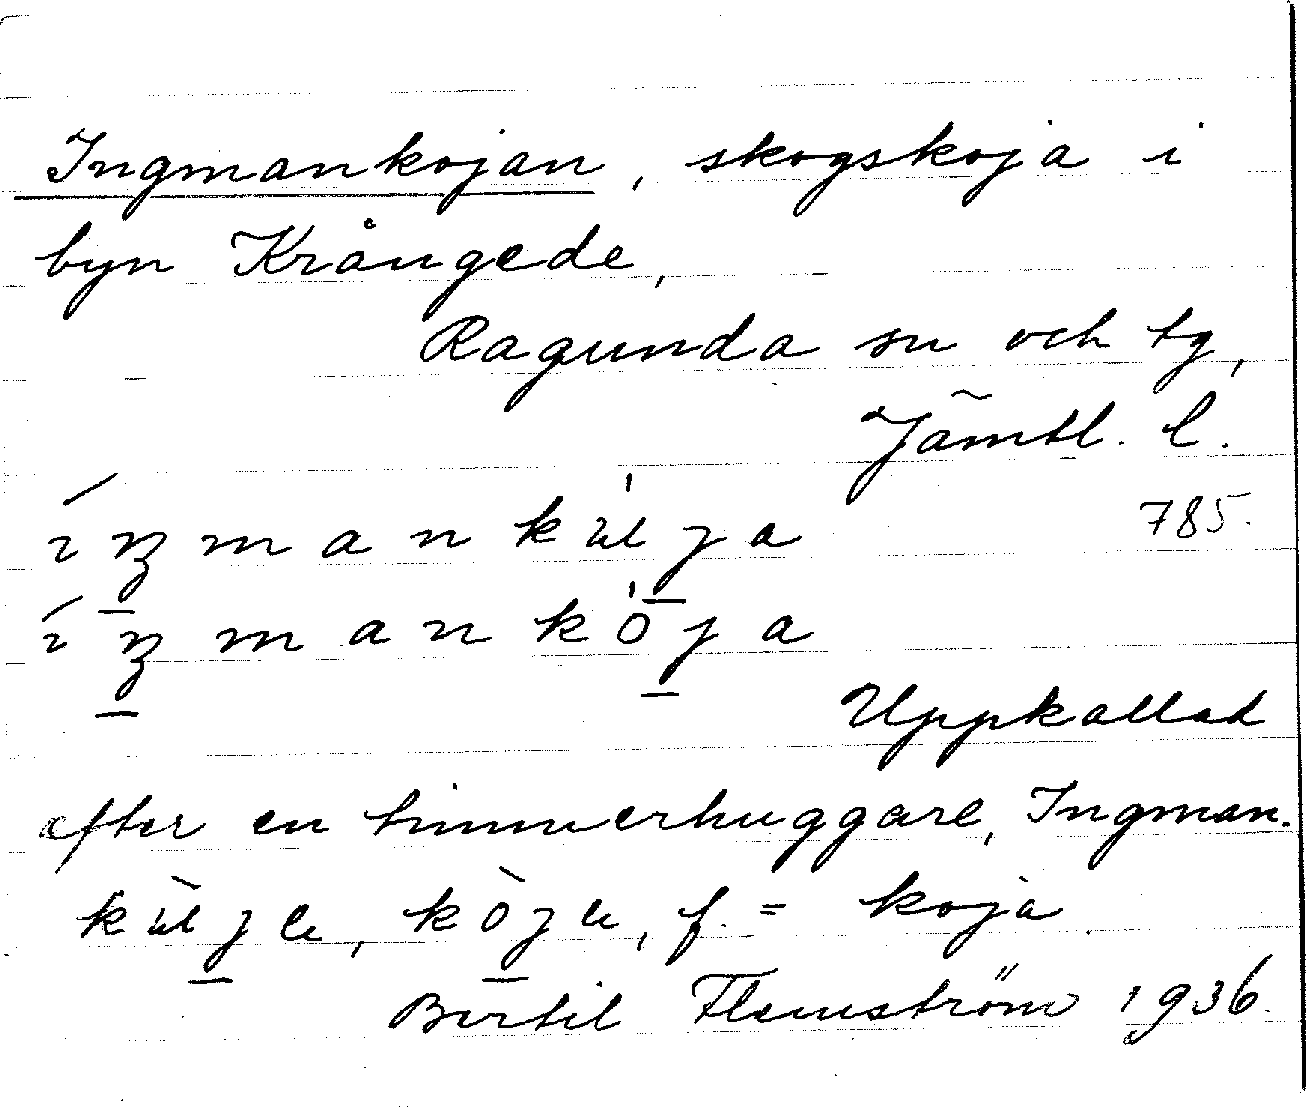 Ingmankojan, skogskoja i
byn Krångede,
Ragunda sn och tg,
Jämtl. l.
785.
Uppkallad
efter en timmerhuggare, Ingman.
f. = koja
Bertil Flemström 1936.